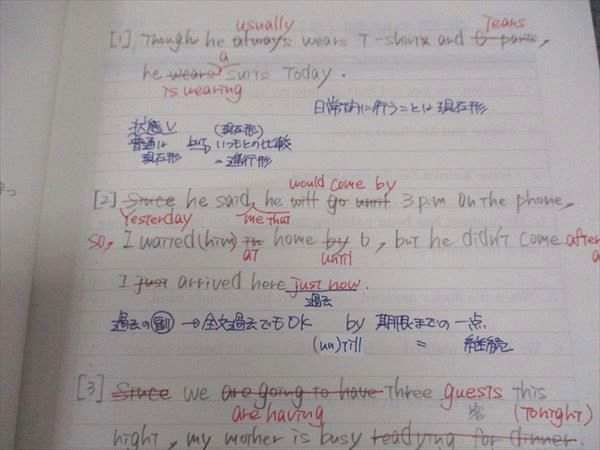 usually
Jeans
[1] Though he always wears T-shirtx and G-pants,
a
he wears suits Today.
is wearing
日常的に行うことは現在形
状態V (現在形)
普通は but いつもとの比較
現在形 = 進行形
would come by
[2] Since he said, he will go until 3 p.m on the phone,
Yesterday me that
so, I waited (him) in home by 6, but he didn't come after
at until
I just arrived here just now.
過去
過去の副 → 全文過去でもOK by 期限までの一点
(un)till = 継続
[3] Since we are going to have Three guests this
are having 客 (Tonight)
night, my mother is busy readying for dinner.